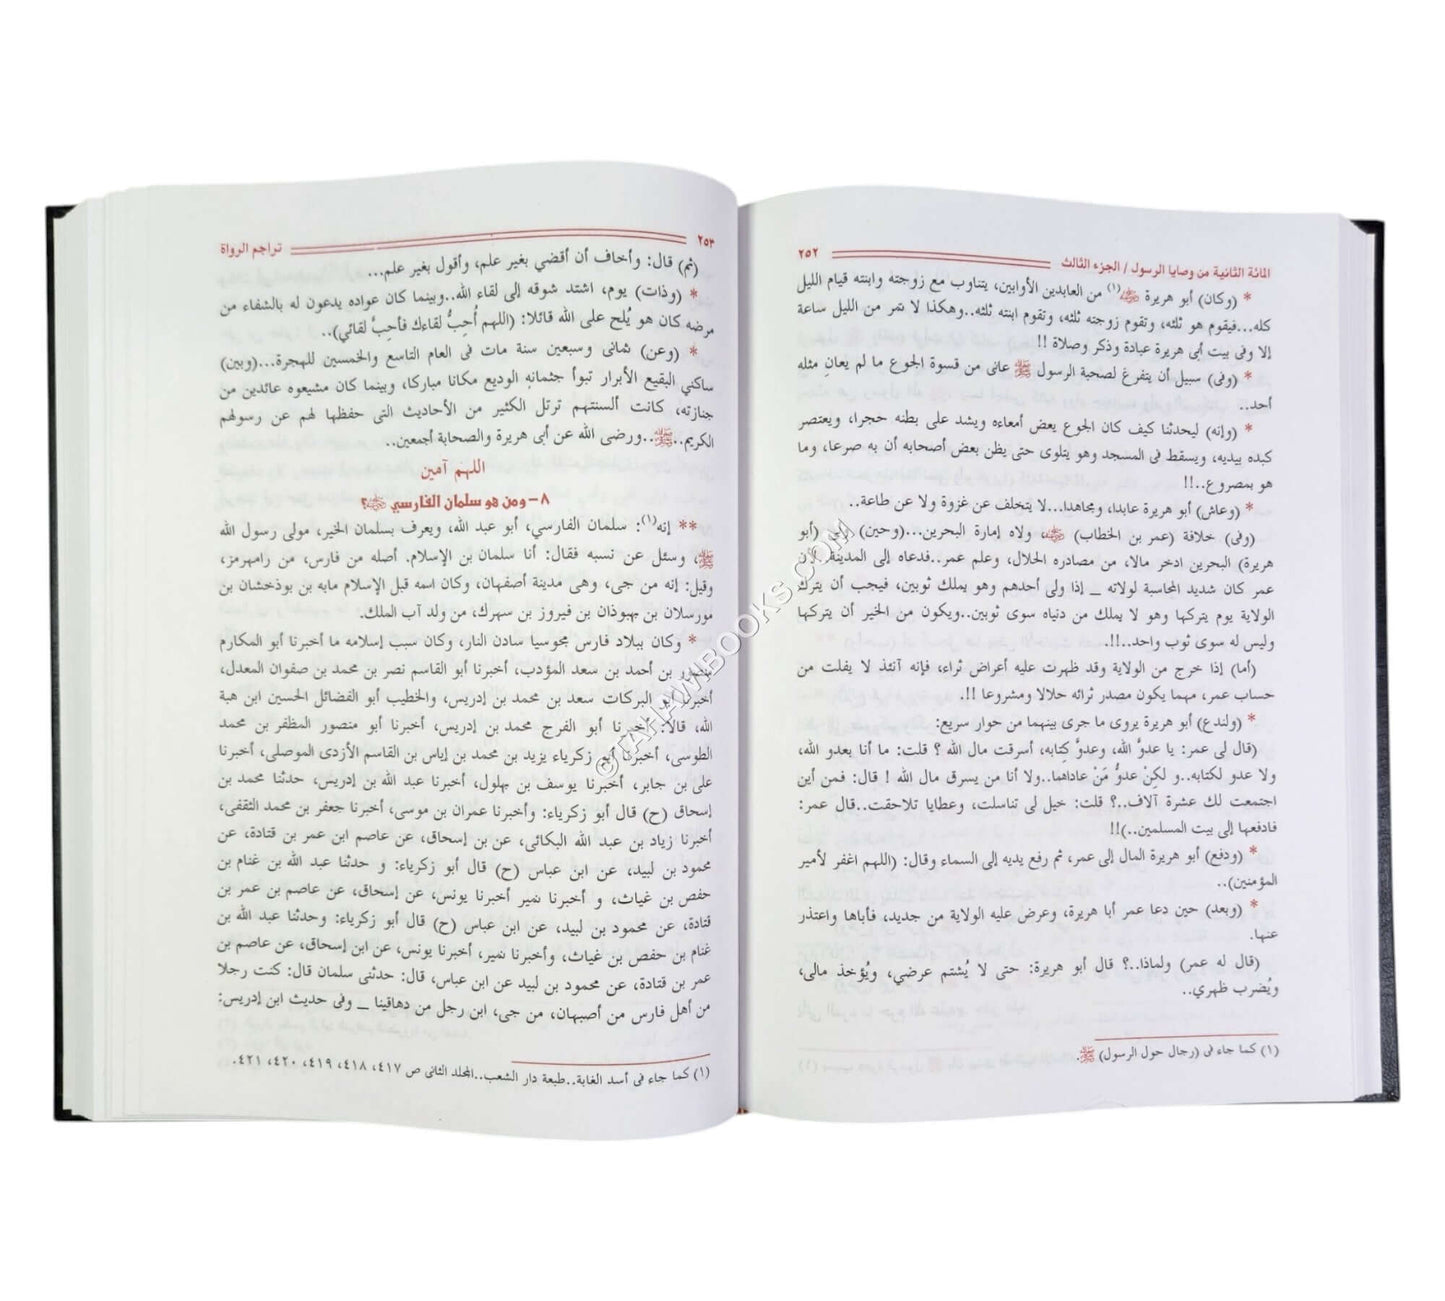 المائة الثانية من وصايا الرسول / الجزء الثالث ٢٥٢
* (وكان) أبو هريرة ﷺ (١) من العابدين الأوابين، يتناوب مع زوجته وابنته قيام الليل
كله...فيقوم هو ثلثه، وتقوم زوجته ثلثه، وتقوم ابنته ثلثه..وهكذا لا تمر من الليل ساعة
إلا وفى بيت أبى هريرة عبادة وذكر وصلاة !!
* (وفى) سبيل أن يتفرغ لصحبة الرسول ﷺ عانى من قسوة الجوع ما لم يعان مثله
أحد..
* (وإنه) ليحدثنا كيف كان الجوع يعض أمعاءه ويشد على بطنه حجرا، ويعتصر
كبده بيديه، ويسقط فى المسجد وهو يتلوى حتى يظن بعض أصحابه أن به صرعا، وما
هو بمصروع..!!
* (وعاش) أبو هريرة عابدا، ومجاهدا...لا يتخلف عن غزوة ولا عن طاعة..
(وفى) خلافة (عمر بن الخطاب) ، ولاه إمارة البحرين...(وحين) ولى (أبو
هريرة) البحرين ادخر مالا، من مصادره الحلال، وعلم عمر..فدعاه إلى المدينة. لأن
عمر كان شديد المحاسبة لولاته _ إذا ولى أحدهم وهو يملك ثوبين، فيجب أن يترك
الولاية يوم يتركها وهو لا يملك من دنياه سوى ثوبين..ويكون من الخير أن يتركها
وليس له سوى ثوب واحد..!!.
(أما) إذا خرج من الولاية وقد ظهرت عليه أعراض ثراء، فإنه آنئذ لا يفلت من
حساب عمر، مهما يكون مصدر ثرائه حلالا ومشروعا !!.
* (ولندع) أبو هريرة يروى ما جرى بينهما من حوار سريع:
(قال لى عمر: يا عدوَّ الله، وعدوَّ كِتابه، أسرقت مال الله ؟ قلت: ما أنا بعدو الله،
ولا عدو لكتابه..و لكِنْ عدوُّ مَنْ عاداهما..ولا أنا من يسرق مال الله ! قال: فمن أين
اجتمعت لك عشرة آلاف..؟ قلت: خيل لى تناسلت، وعطايا تلاحقت..قال عمر:
فادفعها إلى بيت المسلمين..)!!
* (ودفع) أبو هريرة المال إلى عمر، ثم رفع يديه إلى السماء وقال: (اللهم اغفر لأمير
المؤمنين)..
* (وبعد) حين دعا عمر أبا هريرة، وعرض عليه الولاية من جديد، فأباها واعتذر
عنها.
(قال له عمر) ولماذا..؟ قال أبو هريرة: حتى لا يُشتم عرضي، ويُؤخذ مالى،
ويُضرب ظهري..
(١) كما جاء فى (رجال حول الرسول) ﷺ.
٢٥٣ تراجم الرواة
(ثم) قال: وأخاف أن أقضي بغير علم، وأقول بغير علم...
* (وذات) يوم، اشتد شوقه إلى لقاء الله..وبينما كان عواده يدعون له بالشفاء من
مرضه كان هو يُلح على الله قائلا: (اللهم أُحِبُّ لقاءك فأحِبَّ لقائي)..
* (وعن) ثمانى وسبعين سنة مات فى العام التاسع والخمسين للهجرة...(وبين)
ساكني البقيع الأبرار تبوأ جثمانه الوديع مكانا مباركا، وبينما كان مشيعوه عائدين من
جنازته، كانت ألسنتهم ترتل الكثير من الأحاديث التى حفظها لهم عن رسولهم
الكريم..ﷺ...ورضى الله عن أبى هريرة والصحابة أجمعين..
اللهم آمين
٨ – ومن هو سلمان الفارسي ؟
** إنه(١): سلمان الفارسي، أبو عبد الله، ويعرف بسلمان الخير، مولى رسول الله
ﷺ، وسئل عن نسبه فقال: أنا سلمان بن الإسلام. أصله من فارس، من رامهرمز،
وقيل: إنه من جى، وهى مدينة أصفهان، وكان اسمه قبل الإسلام مابه بن بوذخشان بن
مورسلان بن بهبوذان بن فيروز بن سهرك، من ولد آب الملك.
* وكان ببلاد فارس مجوسيا سادن النار، وكان سبب إسلامه ما أخبرنا أبو المكارم
منصور بن أحمد بن سعد المؤدب، أخبرنا أبو القاسم نصر بن محمد بن صفوان المعدل،
أخبرنا أبو البركات سعد بن محمد بن إدريس، والخطيب أبو الفضائل الحسين ابن هبة
الله، قالا: أخبرنا أبو الفرج محمد بن إدريس، أخبرنا أبو منصور المظفر بن محمد
الطوسى، أخبرنا أبو زكرياء يزيد بن محمد بن إياس بن القاسم الأزدى الموصلى، أخبرنا
على بن جابر، أخبرنا يوسف بن بهلول، أخبرنا عبد الله بن إدريس، حدثنا محمد بن
إسحاق (ح) قال أبو زكرياء: وأخبرنا عمران بن موسى، أخبرنا جعفر بن محمد الثقفى،
أخبرنا زياد بن عبد الله البكائى، عن بن إسحاق، عن عاصم ابن عمر بن قتادة، عن
محمود بن لبيد، عن ابن عباس (ح) قال أبو زكرياء: و حدثنا عبد الله بن غنام بن
حفص بن غياث، و أخبرنا نمير أخبرنا يونس، عن إسحاق، عن عاصم بن عمر بن
قتادة، عن محمود بن لبيد، عن ابن عباس (ح) قال أبو زكرياء: وحدثنا عبد الله بن
غنام بن حفص بن غياث، وأخبرنا نمير، أخبرنا يونس، عن ابن إسحاق، عن عاصم بن
عمر بن قتادة، عن محمود بن لبيد عن ابن عباس، قال: حدثنى سلمان قال: كنت رجلا
من أهل فارس من أصبهان، من جى، ابن رجل من دهاقينا _ وفى حديث ابن إدريس:
(١) كما جاء فى أسد الغابة..طبعة دار الشعب..المجلد الثانى ص ٤١٧، ٤١٨، ٤١٩، ٤٢٠، ٤٢١.
©TAHAWIBOOKS.COM